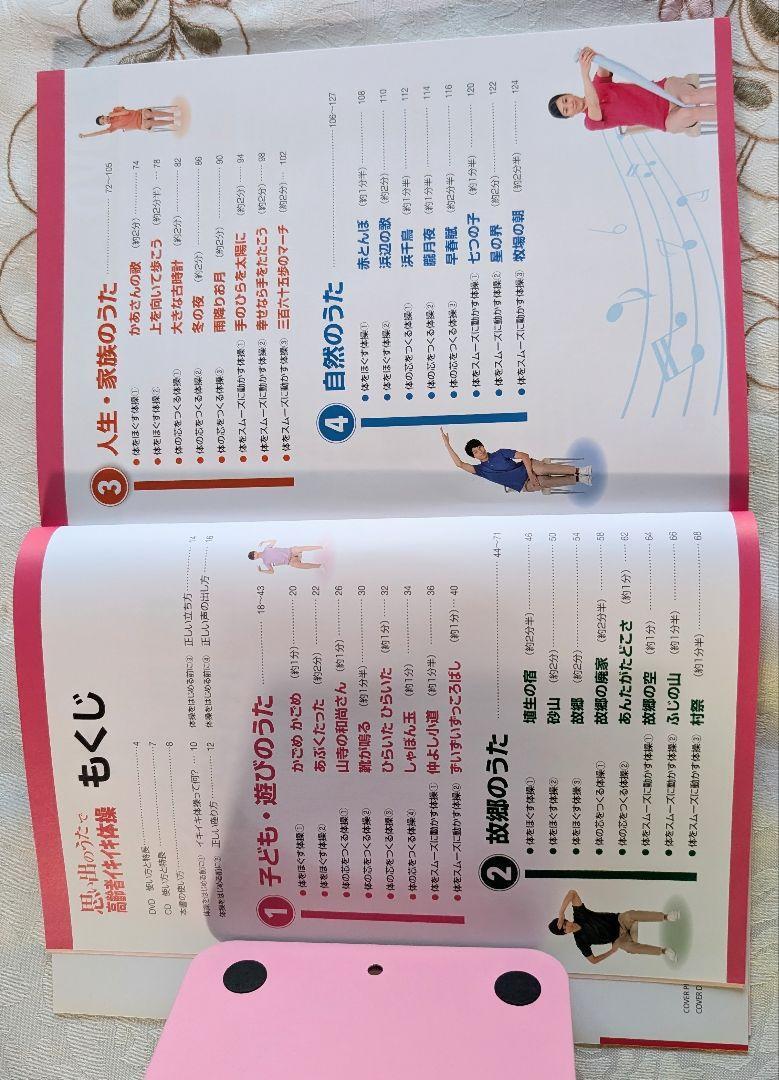 思い出のうたで
高齢者イキイキ体操 もくじ
DVD 使い方と特長 4
CD 使い方と特長 7
本書の使い方 8
体操をはじめる前に① イキイキ体操って何? 10
体操をはじめる前に② 正しい座り方 12
体操をはじめる前に③ 正しい立ち方 14
体操をはじめる前に④ 正しい声の出し方 16
1 子ども・遊びのうた 18〜43
●体をほぐす体操① かごめ かごめ (約1分) 20
●体をほぐす体操② あぶくたった (約2分) 22
●体の芯をつくる体操① 山寺の和尚さん (約1分) 26
●体の芯をつくる体操② 靴が鳴る (約1分半) 30
●体の芯をつくる体操③ ひらいた ひらいた (約1分) 32
●体の芯をつくる体操④ しゃぼん玉 (約1分) 34
●体をスムーズに動かす体操① 仲よし小道 (約1分半) 36
●体をスムーズに動かす体操② ずいずいずっころばし (約1分) 40
2 故郷のうた 44〜71
●体をほぐす体操① 埴生の宿 (約2分半) 46
●体をほぐす体操② 砂山 (約2分) 50
●体をほぐす体操③ 故郷 (約2分) 54
●体の芯をつくる体操① 故郷の廃家 (約2分半) 58
●体の芯をつくる体操② あんたがたどこさ (約1分) 62
●体をスムーズに動かす体操① 故郷の空 (約1分) 64
●体をスムーズに動かす体操② ふじの山 (約1分半) 66
●体をスムーズに動かす体操③ 村祭 (約1分半) 68
3 人生・家族のうた 72〜105
●体をほぐす体操① かあさんの歌 (約2分) 74
●体をほぐす体操② 上を向いて歩こう (約2分半) 78
●体の芯をつくる体操① 大きな古時計 (約2分) 82
●体の芯をつくる体操② 冬の夜 (約2分) 86
●体の芯をつくる体操③ 雨降りお月 (約2分) 90
●体をスムーズに動かす体操① 手のひらを太陽に (約2分) 94
●体をスムーズに動かす体操② 幸せなら手をたたこう (約2分) 98
●体をスムーズに動かす体操③ 三百六十五歩のマーチ (約2分) 102
4 自然のうた 106〜127
●体をほぐす体操① 赤とんぼ (約1分半) 108
●体をほぐす体操② 浜辺の歌 (約2分) 110
●体の芯をつくる体操① 浜千鳥 (約1分半) 112
●体の芯をつくる体操② 朧月夜 (約1分半) 114
●体の芯をつくる体操③ 早春賦 (約2分半) 116
●体をスムーズに動かす体操① 七つの子 (約1分半) 120
●体をスムーズに動かす体操② 星の界 (約2分) 122
●体をスムーズに動かす体操③ 牧場の朝 (約2分半) 124
COVER
COVER D